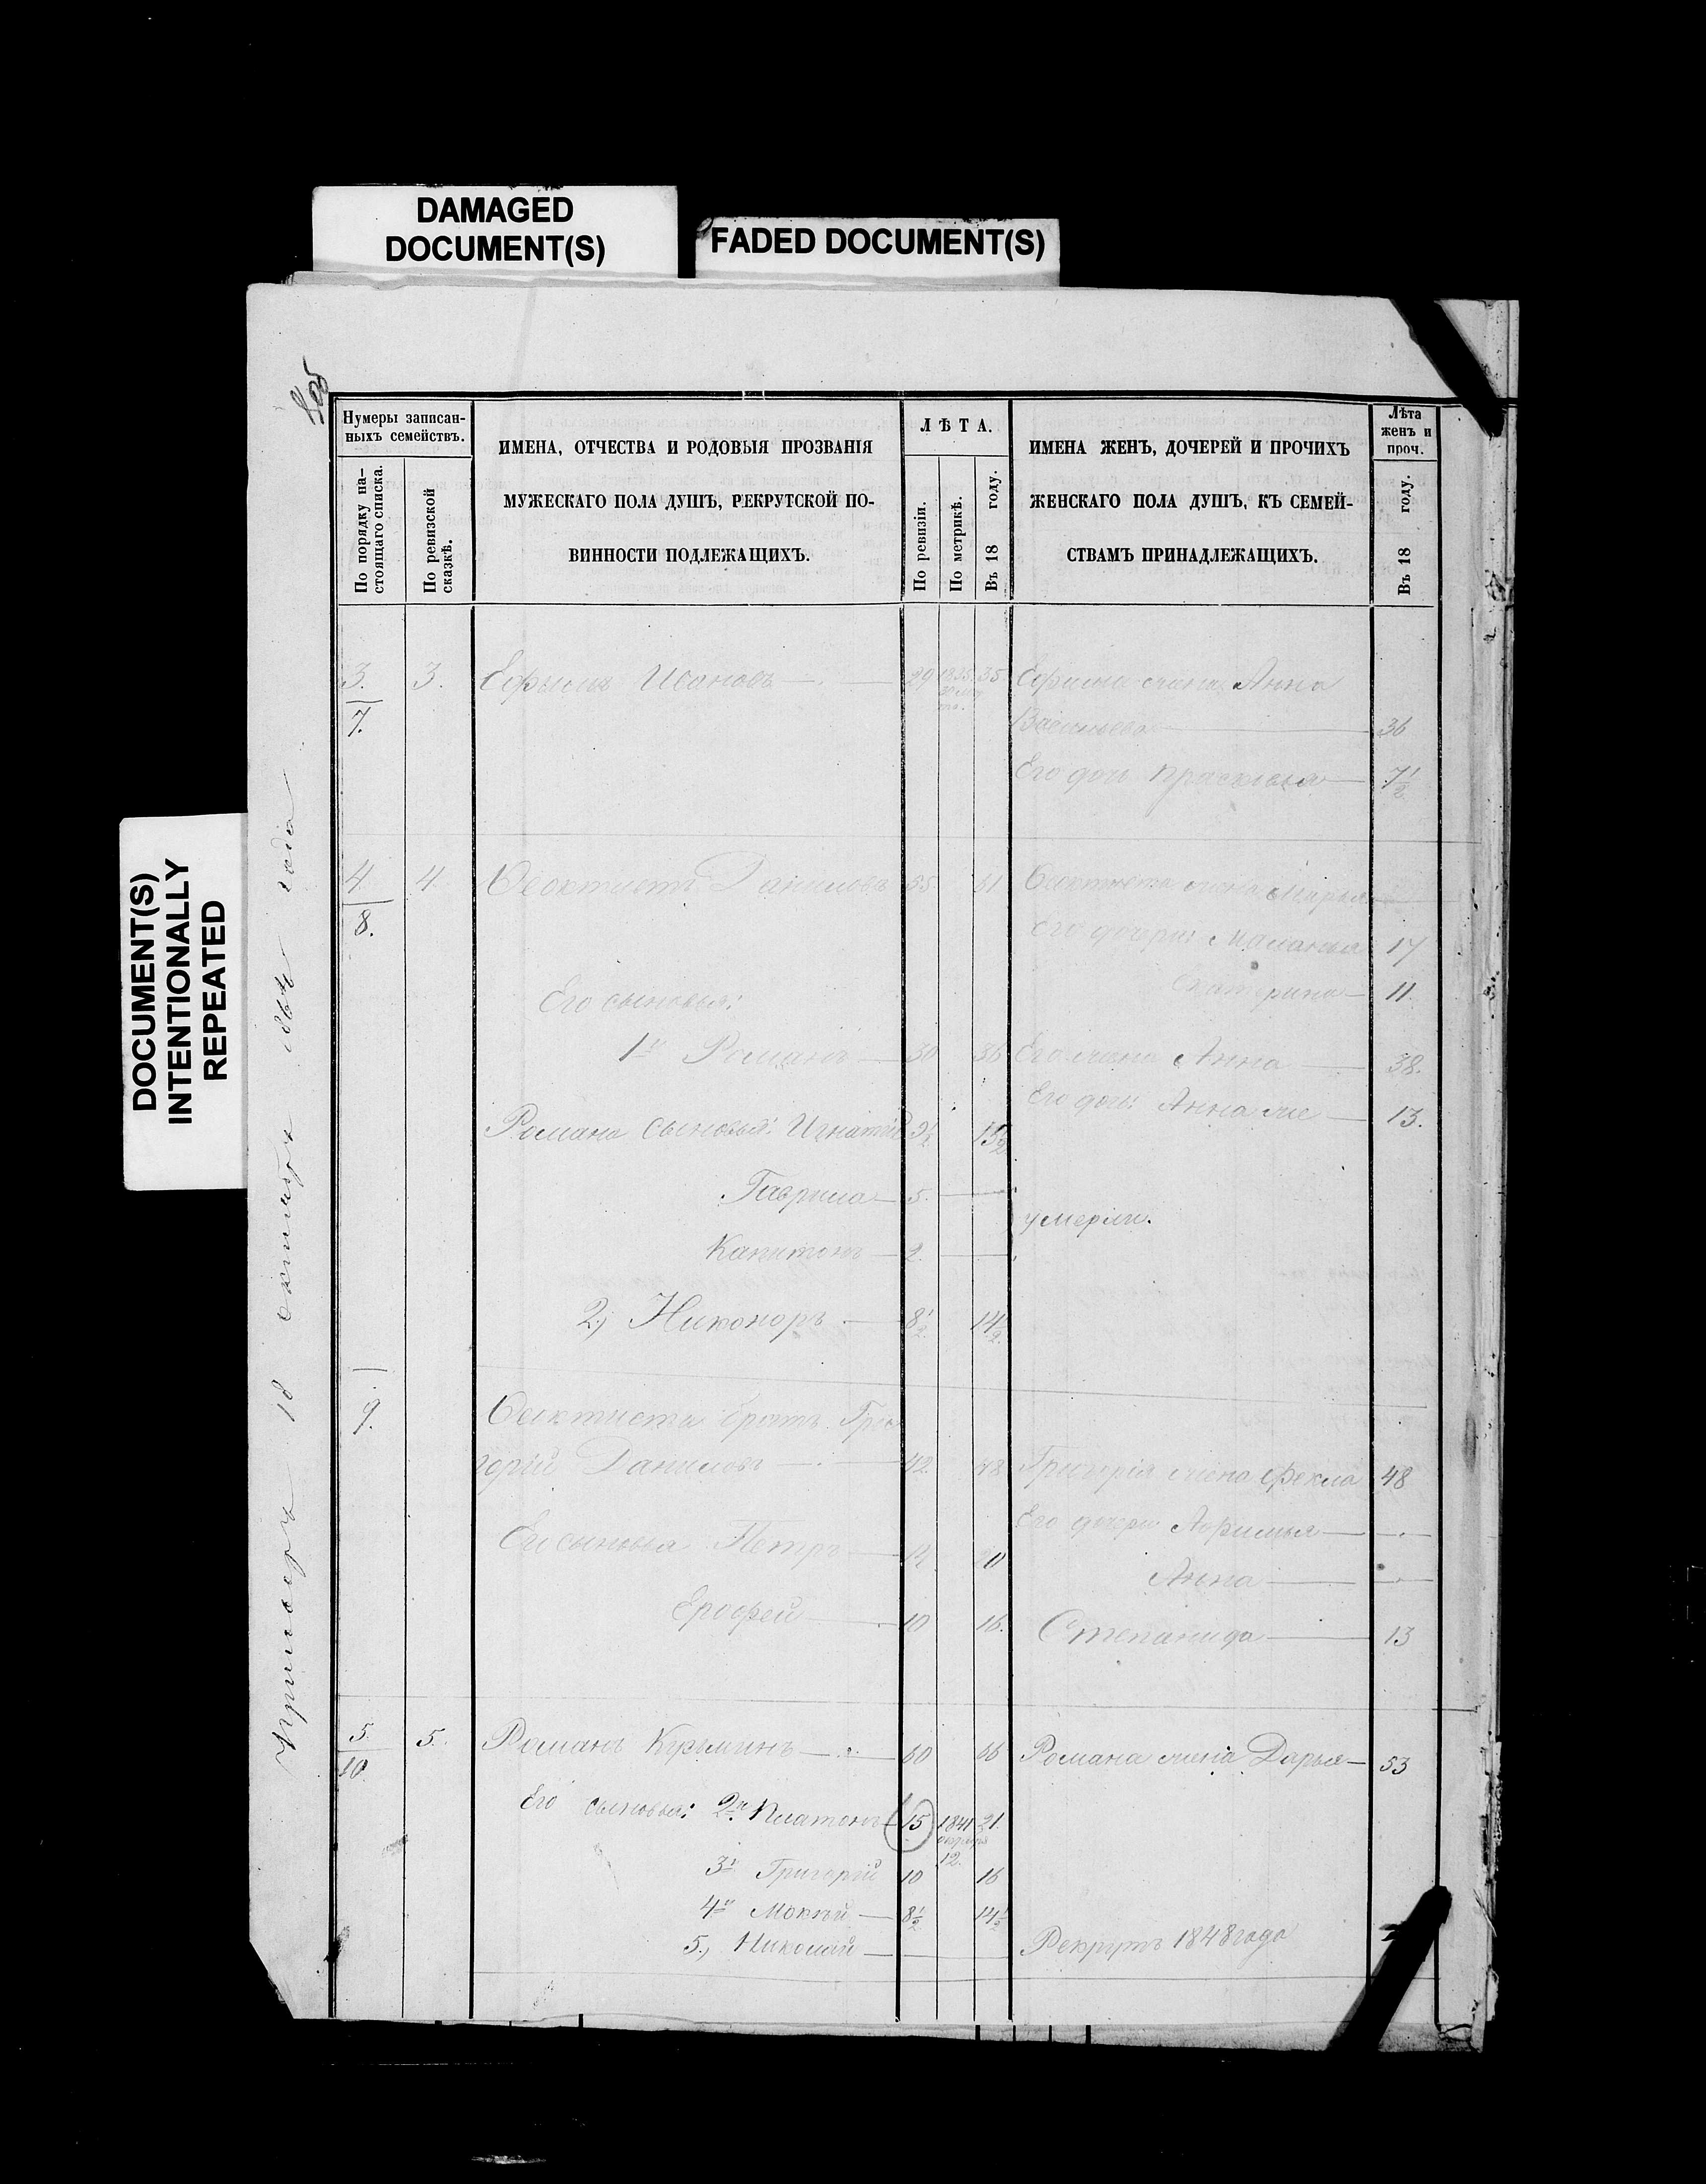 DAMAGED
DOCUMENT(S)
FADED DOCUMENT(S)
DOCUMENT(S)
INTENTIONALLY
REPEATED
18 1864 года
Нумеры записан-
ныхъ семействъ.
По порядку на-
стоящаго списка.
По ревизской
сказкѣ.
ИМЕНА, ОТЧЕСТВА И РОДОВЫЯ ПРОЗВАНІЯ
МУЖЕСКАГО ПОЛА ДУШЪ, РЕКРУТСКОЙ ПО-
ВИННОСТИ ПОДЛЕЖАЩИХЪ.
ЛѢТА.
По ревизіи.
По метрикѣ.
Въ 18 году.
ИМЕНА ЖЕНЪ, ДОЧЕРЕЙ И ПРОЧИХЪ
ЖЕНСКАГО ПОЛА ДУШЪ, КЪ СЕМЕЙ-
СТВАМЪ ПРИНАДЛЕЖАЩИХЪ.
Лѣта
женъ и
проч.
Въ 18 году.
3. 3. Ефимъ Ивановъ 29 1835. 35. Ефима жена Анна
7. Васильева 36
Его дочь Прасковья 7 1/2
4 4. Феоктистъ Даниловъ 55. 61 Феоктиста жена Марья
8. Его дочери: Маланья 17
Екатерина 11.
Его сыновья:
1й Романъ 30 36 Его жена Анна 38.
Его дочь: Анна же 13.
Романа сыновья: Игнатій 9 1/2 15 1/2
Гаврила 5.
умерли.
Капитонъ 2.
2, Никоноръ 8 1/2 14 1/2
9. Феоктиста братъ Гри-
горій Даниловъ 42. 48 Григорія жена Фекла 48
Его дочери Афимья
Его сыновья Петръ 14 20
Анна
Ерофей 10 16. Степанида 13
5. 5. Романъ Кузьминъ 60 66 Романа жена Дарья 53
10.
Его сыновья: 2й Платонъ 15 1841 21.
12.
3й Григорій 10 16
4й Мокѣй 8 1/2 14 1/2
5, Николай Рекрутъ 1848 года